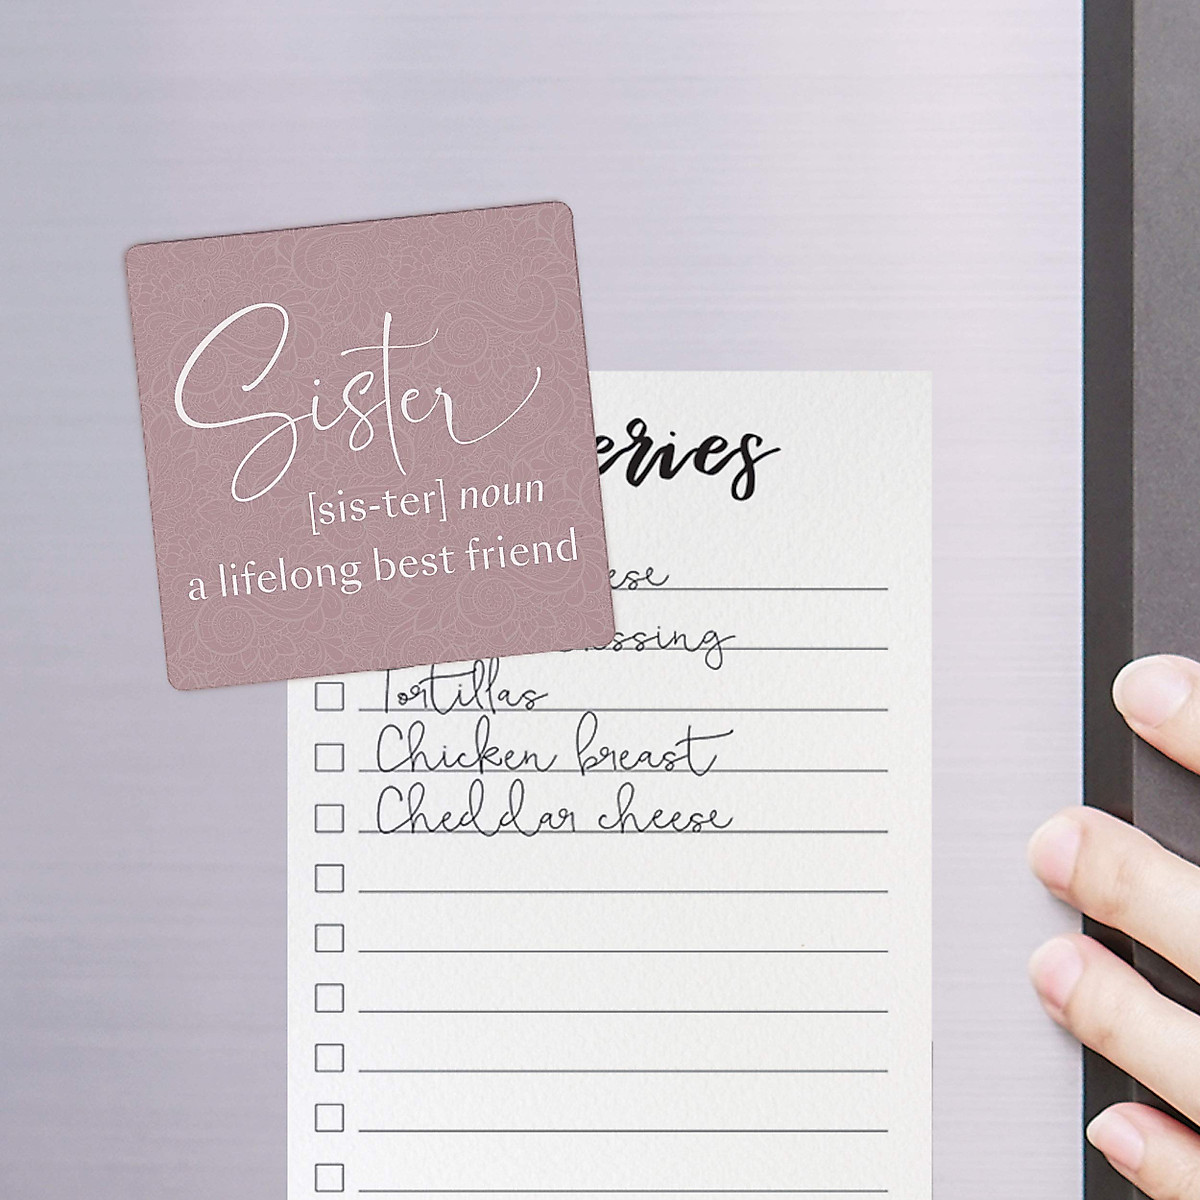 Sister
[sis-ter] noun
a lifelong best friend
Tortillas
Chicken breast
Cheddar cheese